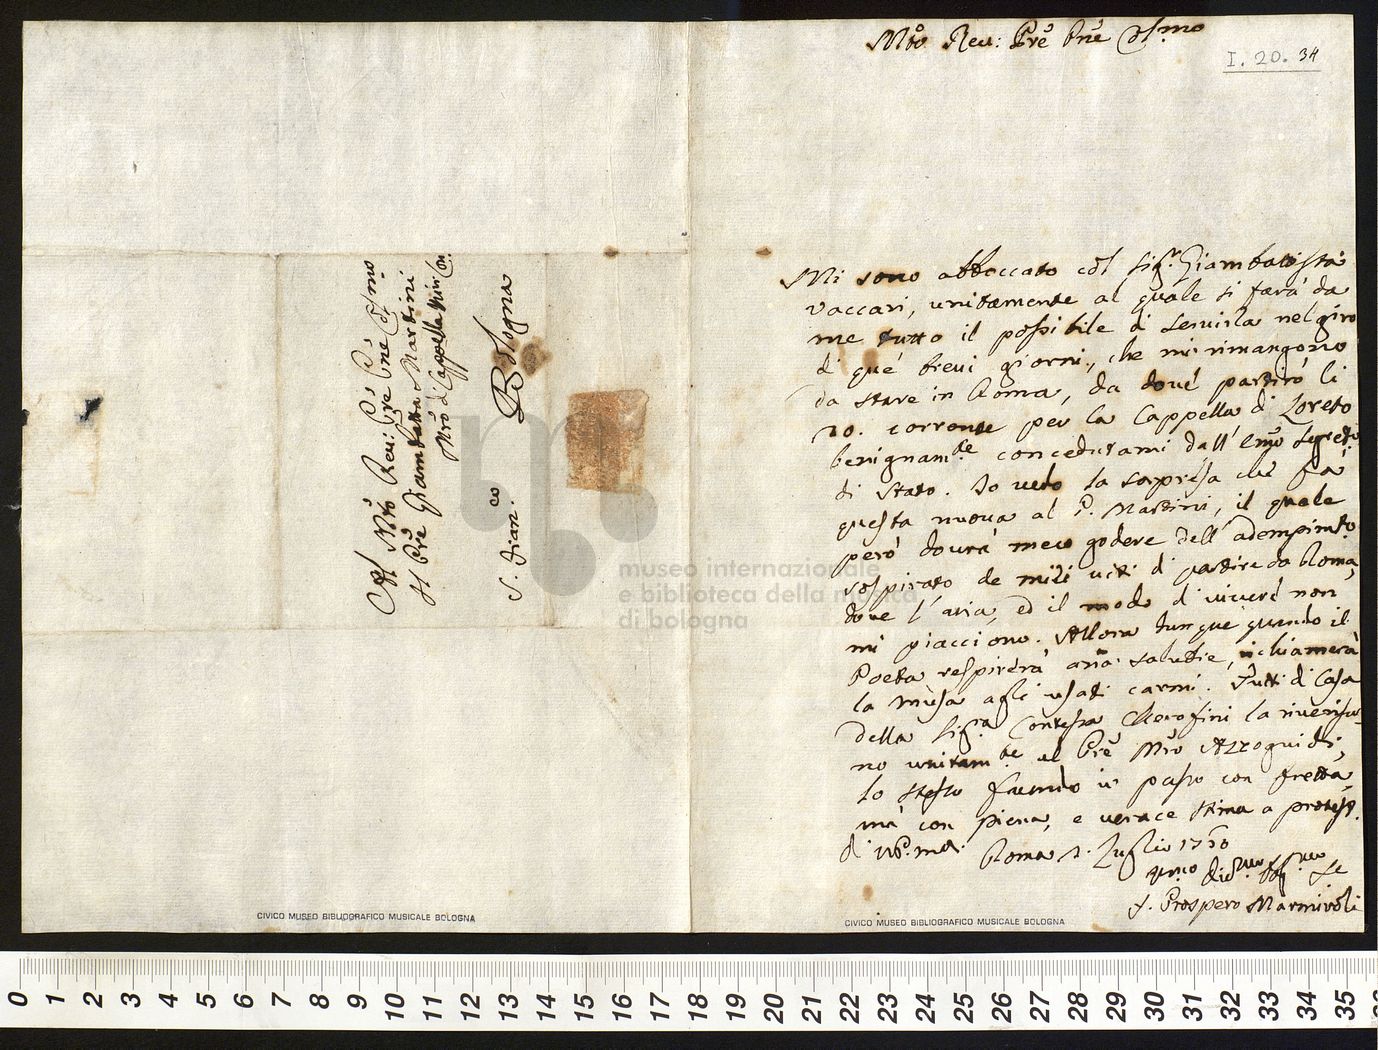 Al Mtō Reu: Prē Prē Pne Colmo
Il Prē Giambatta Martini
Mrō di Cappella Min. Con.
S. Fran.co Bologna
Mtō Reu: Prē Pnē Colmo
I. 20. 34
Mi sono abboccato col Sig.r Giambatista
Vaccari, unitamente al quale si farà da
me tutto il possibile di seruirla nel giro
di que' breui giorni, che mi rimangono
da stare in Roma, da dove partirò li
20. corrente per la Cappella di Loreto
benignam.te concedutami dall' Emō Segret.
di Stato. Io vedo la sorpresa che fà
questa nuova al P. Martini, il quale
però dourà meco godere dell' adempim.to
sospirato de miei voti di partire da Roma,
doue l'aria, ed il modo di viuere non
mi piacciono. Allora dunque quando il
Poeta respirerà aria salubre, richiamerà
la Musa agli usati carmi. Tutti di Casa
della Sig.ra Contessa Cherofini la riueris
no unitam.te al Prē Mrō Azzoguidi,
lo stesso facendo io passo con fretta,
mà con piena, e verace stima a protest.
di V.P. m.a Roma 1. Luglio 1750
f. Prospero Marmiroli
museo internazionale
e biblioteca della musica
di bologna
CIVICO MUSEO BIBLIOGRAFICO MUSICALE BOLOGNA
CIVICO MUSEO BIBLIOGRAFICO MUSICALE BOLOGNA
0 1 2 3 4 5 6 7 8 9 10 11 12 13 14 15 16 17 18 19 20 21 22 23 24 25 26 27 28 29 30 31 32 33 34 35